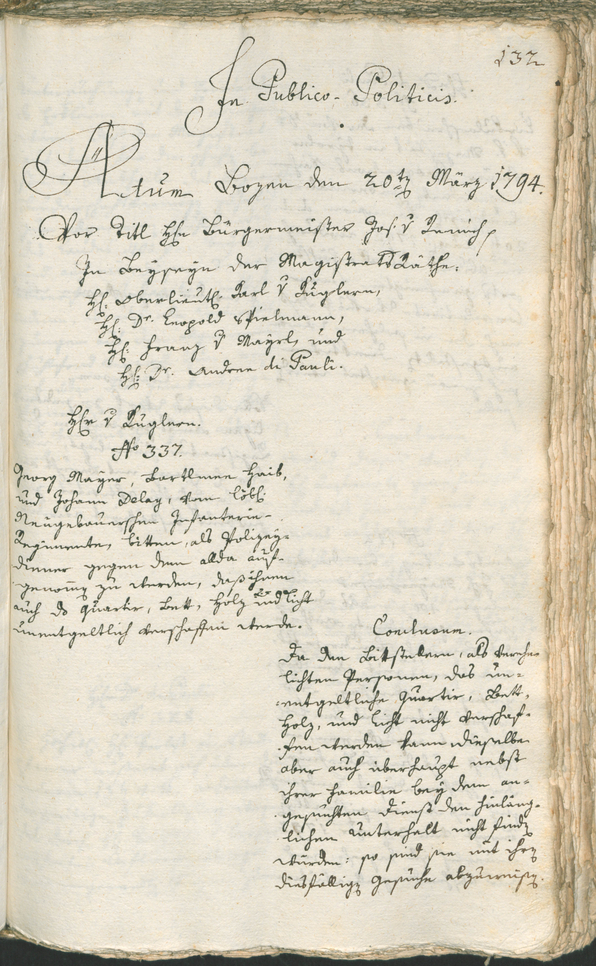 132
In Publico-Politicis.
Actum Bozen den 20tn März 1794.
Vor Titl Hrn Bürgermeister Jos: v
In Beyseyn der Magistrats Räthe:
H: Oberlieut: Karl v Kuglern,
H: Dr. Leopold Spielmann,
H: Franz v Mayrl, und
H: Dr. Andree di Pauli.
Hr v Kuglern.
No 337.
Georg Mayer, Bartlmee Haib,
und Johann Delag, vom löbl:
Neugebauerschen Infanterie-
Regimente, bitten, als Polizey-
diener gegen dem allda auf-
genom̄en zu werden, daß ihnen
auch das Quartir, Bett, Holz und Licht
unentgeltlich verschaffen werde.
Conclusum.
Da den Bittstellern, als verehe-
lichten Personen, das un-
entgeltliche Quartir, Bett,
Holz, und Licht nicht verschaf-
fen werden kann dieselbe
aber auch überhaupt nebst
ihrer Familie bey dem an-
gesuchten Dienst den hinläng-
lichen Unterhalt nicht finden
würden: so sind sie mit ihren
diesfälligen Gesuche abzuweisen.